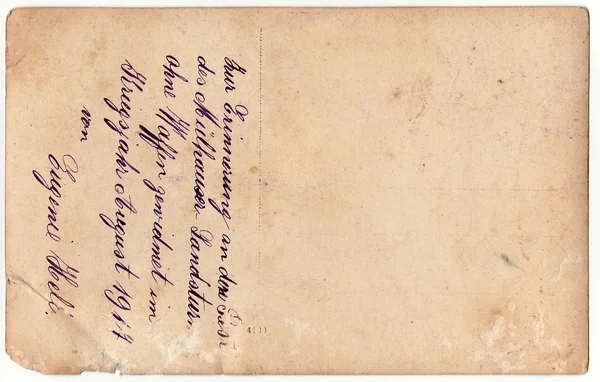 Zur Erinnerung an den
des Mülhauser Landsturm
ohne Waffen gewidmet im
Kriegsjahr August 1917
von
Eugenie
4(1)